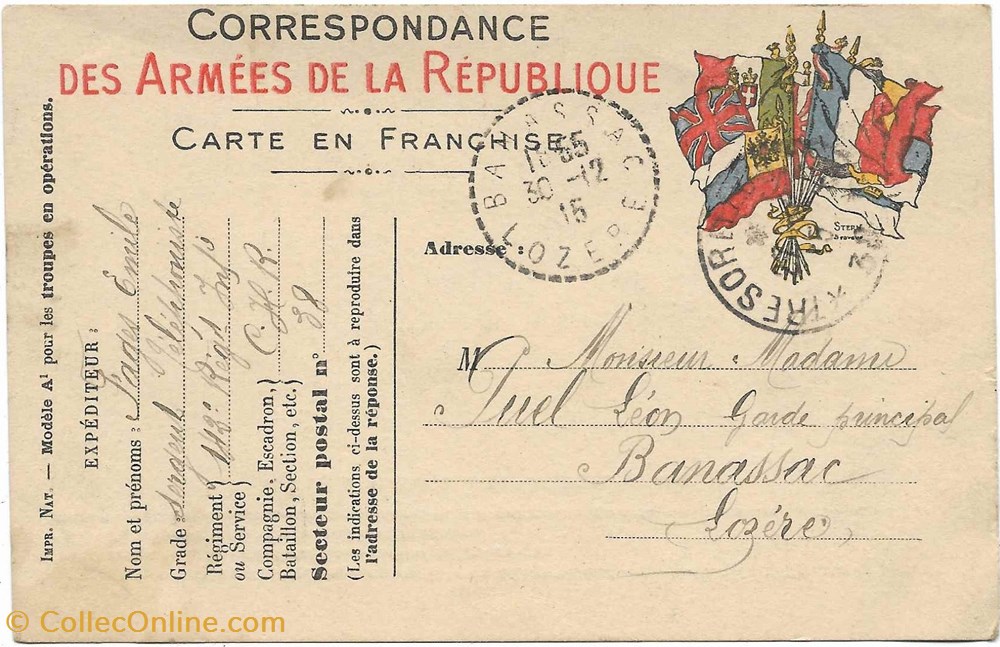 CORRESPONDANCE
DES ARMÉES DE LA RÉPUBLIQUE
CARTE EN FRANCHISE
BANASSAC
11 55
30 -12
15
LOZERE
TRESOR
STERN
Adresse :
M Monsieur Madame
Puel Léon Garde principal
Banassac
Lozére
IMPR. NAT. — Modèle A¹ pour les troupes en opérations.
EXPÉDITEUR :
Nom et prénoms : Pagès Emile
Grade : sergent téléphoniste
Régiment ou Service } 142e Régt Inf
Compagnie, Escadron, Bataillon, Section, etc. } C.H.R.
Secteur postal n° 38
(Les indications ci-dessus sont à reproduire dans
l'adresse de la réponse.)
© CollecOnline.com